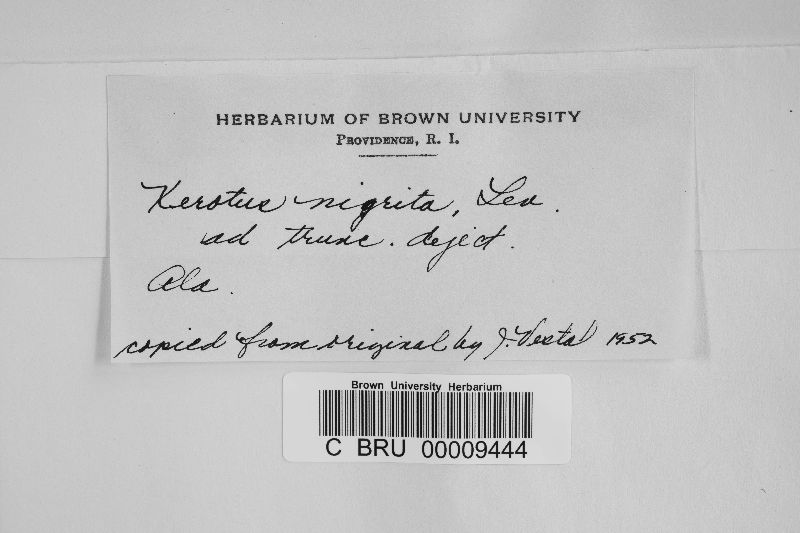 HERBARIUM OF BROWN UNIVERSITY
PROVIDENCE, R. I.
Xerotus nigrita, Lev.
ad trunc. deject.
Ala.
copied from original by J. Vestal 1952
Brown University Herbarium
C BRU 00009444